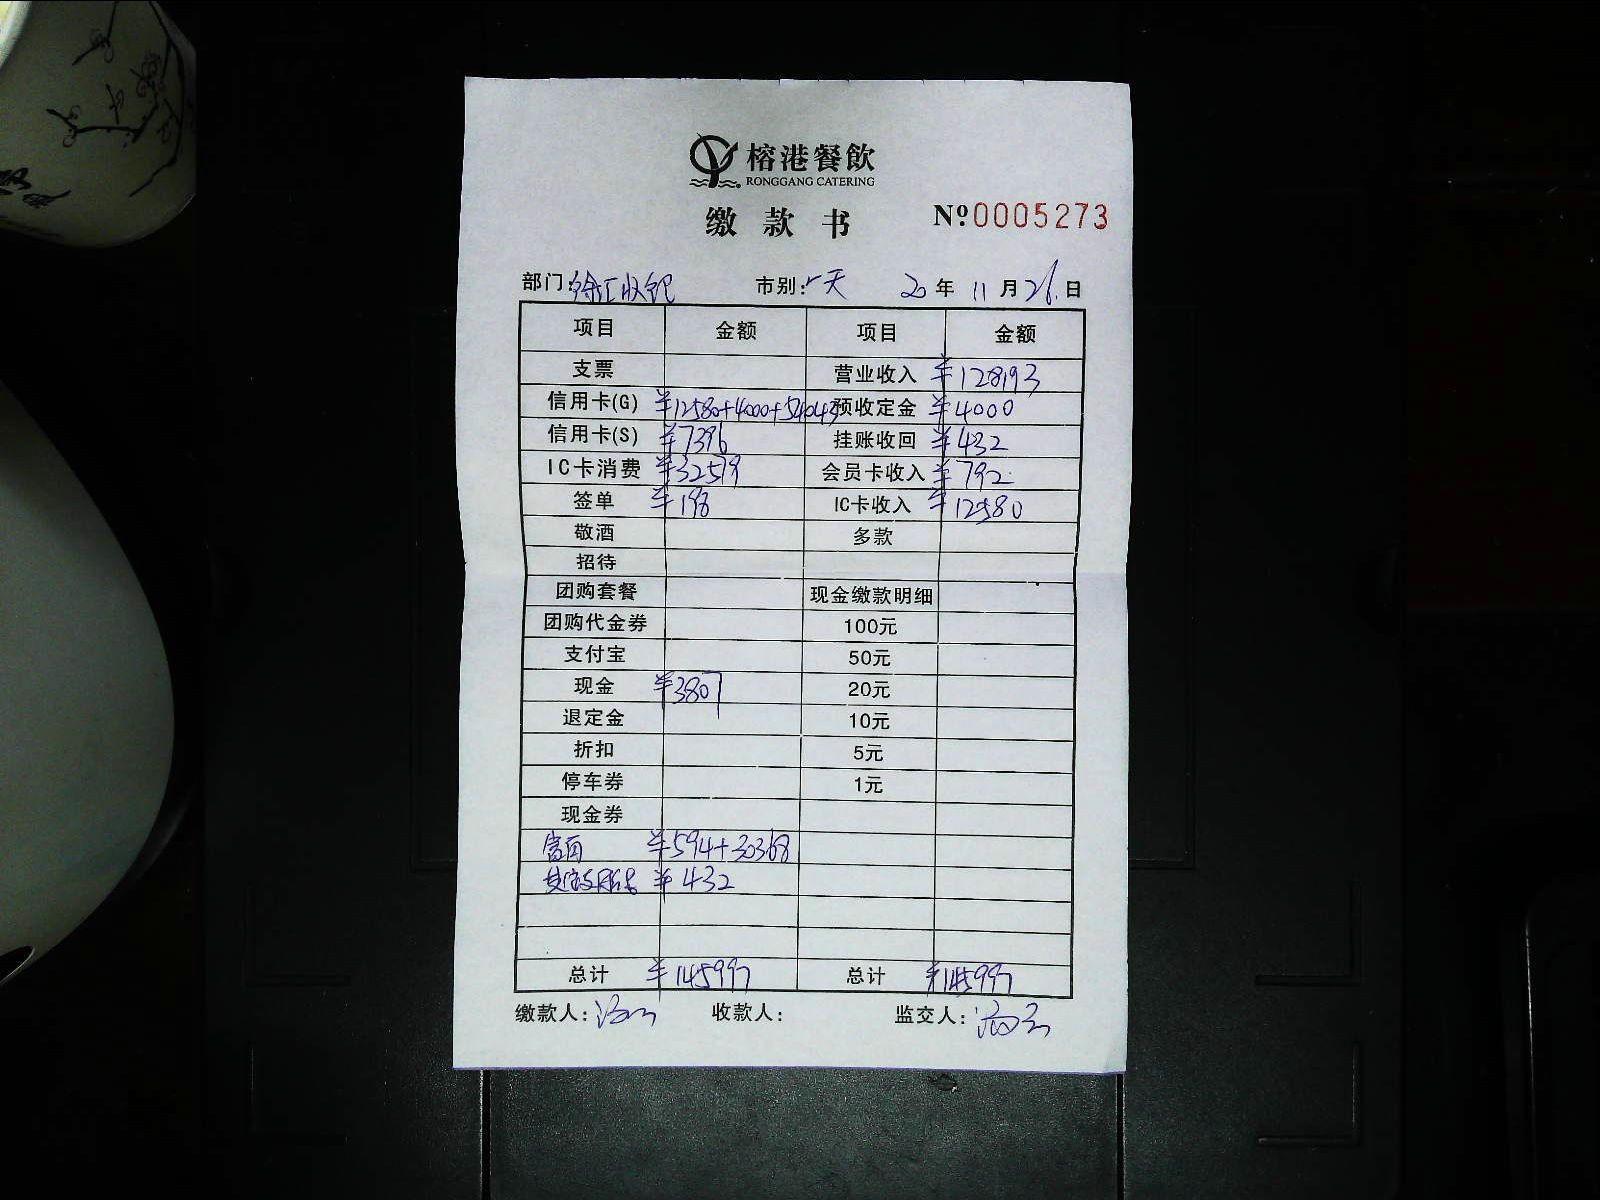 榕港餐飲
RONGGANG CATERING
缴款书 Nº0005273
部门:徐汇收银 市别: 天 20年11月26日
项目 金额 项目 金额
支票 营业收入 ¥128193
信用卡(G) ¥12580+4000+54043 预收定金 ¥4000
信用卡(S) ¥7396 挂账收回 ¥432
IC卡消费 ¥32579 会员卡收入 ¥792
签单 ¥198 IC卡收入 ¥12580
敬酒 多款
招待
团购套餐 现金缴款明细
团购代金券 100元
支付宝 50元
现金 ¥3807 20元
退定金 10元
折扣 5元
停车券 1元
现金券
¥594+30368
¥432
总计 ¥145997 总计 ¥145997
缴款人: 收款人: 监交人: